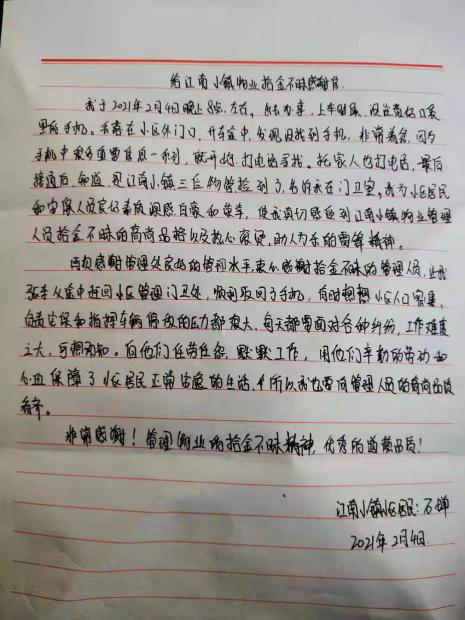 给江南小镇物业拾金不昧感谢信
我于2021年2月4日晚上8点左右,外出办事,上车时候,没注意好口袋
里的手机。丢落在小区外门口,开车途中,发现没找到手机,非常着急,因为
手机中很多重要信息一系列,就开始打电话寻找,托家人也打电话,最后
接通后,知道,是江南小镇三位物管捡到了,书放在门卫室,我为小区居民
和管理人员良好素质深感自豪和荣幸,使我真切感受到江南小镇物业管理
人员拾金不昧的高尚品格以及热心豪爽,助人为乐的雷锋精神。
再次感谢管理处良好的管理水平,衷心感谢拾金不昧的管理人员,让我
从途中赶回小区管理门卫处,顺利取回了手机,有时想想小区人口密集,
负责安保和指挥车辆停放的压力都很大,每天都要面对各种纠纷,工作难度
之大,可想而知。而他们任劳任怨,默默工作,用他们辛勤的劳动和
心血保障了小区居民正常安定的生活,所以我也要向管理人员的高尚品质
看齐。
非常感谢!管理物业的拾金不昧精神,优秀的道德品质!
江南小镇小区居民:石
2021年2月4日